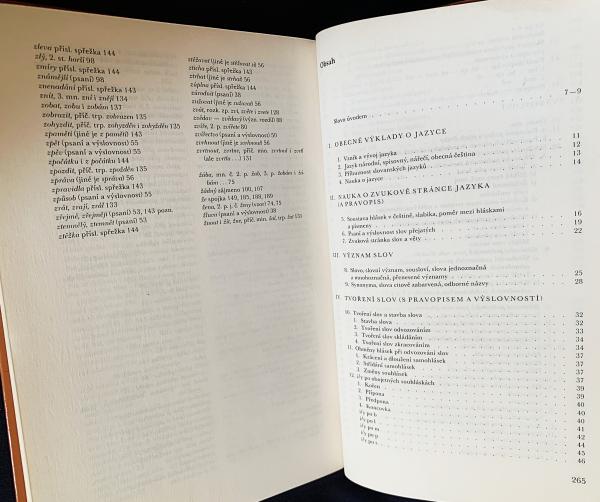 zleva přísl. spřežka 144
zlý, 2. st. horší 98
zmiry přísl. spřežka 144
známější (psaní) 98
znenadání přísl. spřežka 143
znít, 3. mn. zní i znějí 134
zobat, zobu i zobám 137
zobrazit, příč. trp. zobrazen 135
zohyzdit, příč. trp. zohyžděn i zohyzděn 135
zpaměti (jiné je z paměti) 143
zpět (psaní a výslovnost) 55
zpěv (psaní a výslovnost) 55
zpočátku i z počátku 144
zpozdit, příč. trp. zpožděn 135
zpráva (jiné je správa) 56
zpravidla přísl. spřežka 143
způsob (psaní a výslovnost) 55
zrát, zraji, zrál 133
zřejmě, zřejměji (psaní) 53, 143 pozn.
ztemnělý, ztemnět (psaní) 53
ztěžka přísl. spřežka 144
ztěžovat (jiné je stěžovat si) 56
zticha přísl. spřežka 143
ztrhat (jiné je strhat) 56
zúplna přísl. spřežka 144
zúrodnit (psaní) 38
zužovat (jiné je
zvát, rozk. zp. zvi, zvěte i zvete 128
zvědav — zvědavý (význ. rozdíl) 88
zvíře, 2. p. zvířete 80
zvěrstvo (psaní a výslovnost) 56
zvrhnout (jiné je svrhnout) 56
zvrtnout, zvrtne, příč. min. zvrtnul i zvrtl
(ale zvrtla . . .) 131
žába, mn. č. 2. p. žab, 3. p. žabám i žá-
bám . . . 75
žádný zájmeno 100, 107
že spojka 149, 185, 188, 189
žena, 2. p. j. č. ženy (vzor) 74, 75
žluva (psaní a výslovnost) 38
žnout i žít, žne, příč. min. žal, trp. žat 131
Obsah
Slovo úvodem 7—9
I. OBECNÉ VÝKLADY O JAZYCE
1. Vznik a vývoj jazyka 11
2. Jazyk národní, spisovný, nářečí, obecná čeština 12
3. Příbuznost slovanských jazyků 13
4. Nauka o jazyce 14
II. NAUKA O ZVUKOVÉ STRÁNCE JAZYKA
(A PRAVOPIS)
5. Soustava hlásek v češtině, slabika, poměr mezi hláskami
a písmeny 16
6. Psaní a výslovnost slov přejatých 19
7. Zvuková stránka slov a věty 22
III. VÝZNAM SLOV
8. Slovo, slovní význam, sousloví, slova jednoznačná
a mnohoznačná, přenesené významy 25
9. Synonyma, slova citově zabarvená, odborné názvy 28
IV. TVOŘENÍ SLOV (S PRAVOPISEM A VÝSLOVNOSTÍ)
10. Tvoření slov a stavba slova 32
1. Stavba slova 32
2. Tvoření slov odvozováním 33
3. Tvoření slov skládáním 34
4. Tvoření slov zkracováním 34
11. Obměny hlásek při odvozování slov 37
1. Krácení a dloužení samohlásek 37
2. Střídání samohlásek 37
3. Změny souhlásek 37
12. i/y po obojetných souhláskách 39
1. Kořen 39
2. Přípona 40
3. Předpona 40
4. Koncovka 40
i/y po b 40
i/y po l 41
i/y po m 42
i/y po p 44
i/y po s 45
46
265